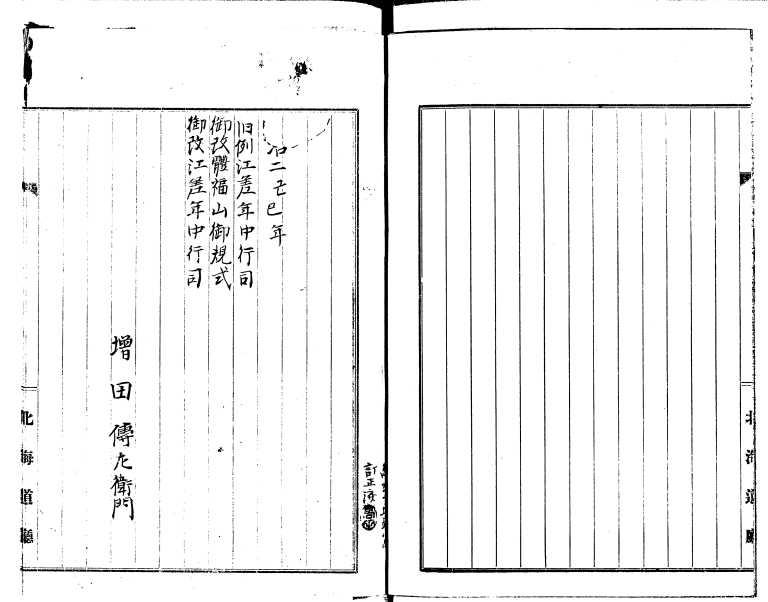 治二己巳年
旧例江差年中行司
御改體福山御規式
御改江差年中行司
増田傳左衛門
訂正済
北海道廳
北海道廳